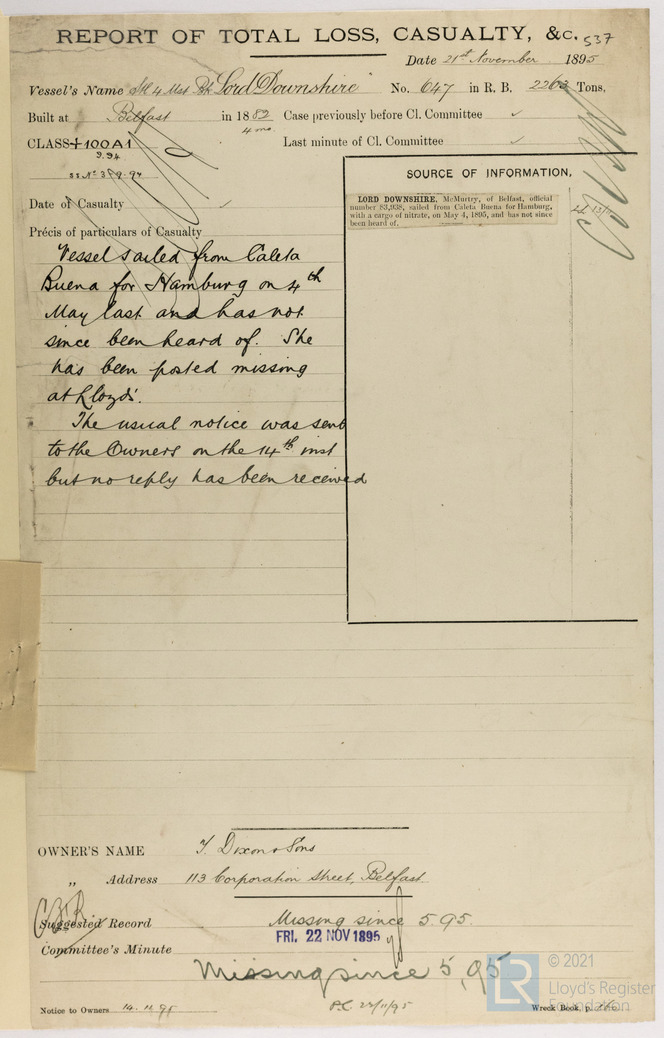 REPORT OF TOTAL LOSS, CASUALTY, &c. 537
Date 21st November 1895
Vessel's Name "Lord Downshire" No. 647 in R. B. 2263 Tons.
Built at Belfast in 1882 Case previously before Cl. Committee ✓
4 mo.
CLASS +100A1 Last minute of Cl. Committee ✓
9.94
SOURCE OF INFORMATION,
LORD DOWNSHIRE, McMurtry, of Belfast, official
number 83,938, sailed from Caleta Buena for Hamburg,
with a cargo of nitrate, on May 4, 1895, and has not since
been heard of.
Date of Casualty ✓
Précis of particulars of Casualty
Vessel sailed from Caleta
Buena for Hamburg on 4th
May last and has not
since been heard of. She
has been posted missing
at Lloyds'.
The usual notice was sent
to the Owners on the 14th inst
but no reply has been received
OWNER'S NAME T. Dixon & Sons
„ Address 113 Corporation Street, Belfast
Suggested Record Missing since 5.95.
FRI. 22 NOV 1895
Committee's Minute
Missing since 5,95
© 2021
LR Lloyd's Register
Foundation
Notice to Owners 14.11.95 22/11/95 Wreck Book, p.